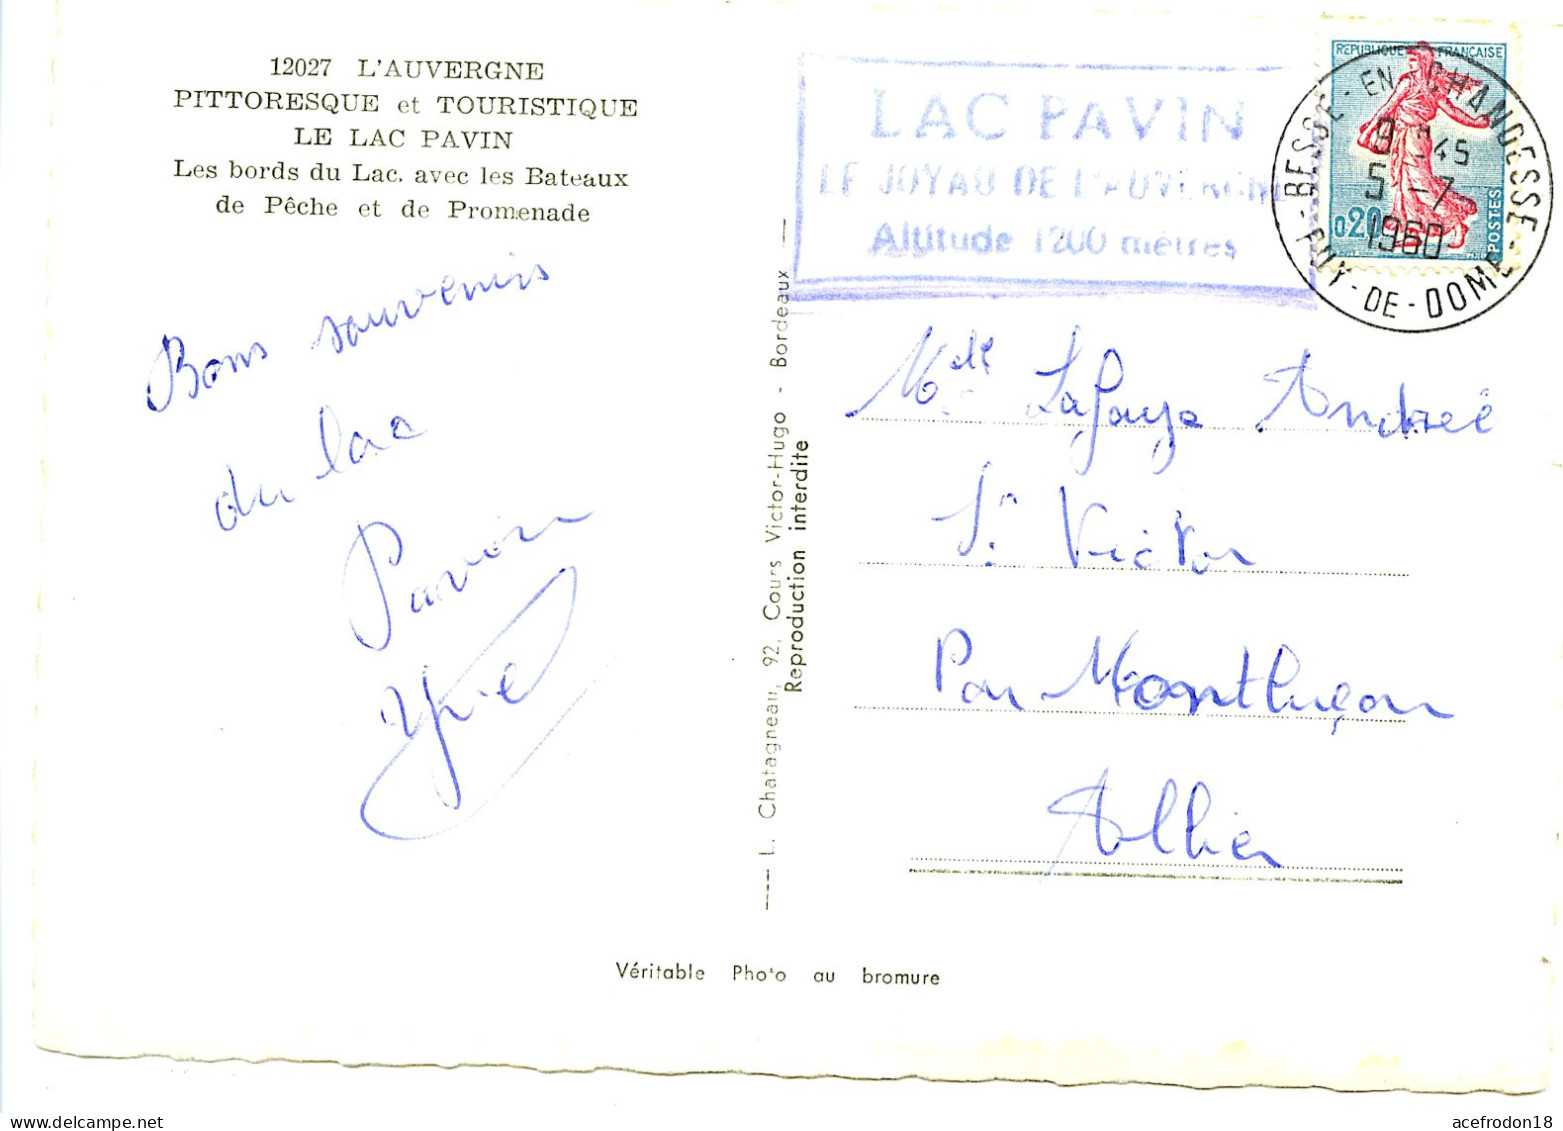 12027 L'AUVERGNE
PITTORESQUE et TOURISTIQUE
LE LAC PAVIN
Les bords du Lac. avec les Bateaux
de Pêche et de Promenade
Bons souvenirs
du lac
Pavin
L. Chatagneau, 92, Cours Victor-Hugo - Bordeaux
Reproduction interdite
LAC PAVIN
LE JOYAU DE L'AUVERGNE
Altitude 1200 mètres
REPUBLIQUE FRANÇAISE
0,20
POSTES
BESSE-EN-CHANDESSE
9 H45
5 -7
1960
PUY-DE-DOME
Melle Lafaye Andrée
St Victor
Par Montluçon
Allier
Véritable Photo au bromure
www.delcampe.net
acefrodon18